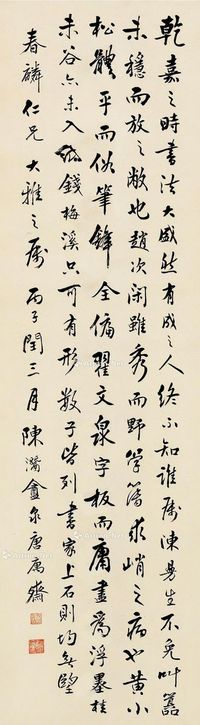 乾嘉之時書法大盛然有成之人終不知誰屬陳曼生不免叫囂
未穩而放之敝也趙次閑雖秀而野學簡求峭之病也黃小
松體平而俗筆鋒全偏翟文泉字板而庸盡為浮墨桂
未谷亦未入 錢梅溪只可有形數子皆列書家上石則均無堅
春麟仁兄大雅之屬 丙子閏三月陳潏盦 唐 齋